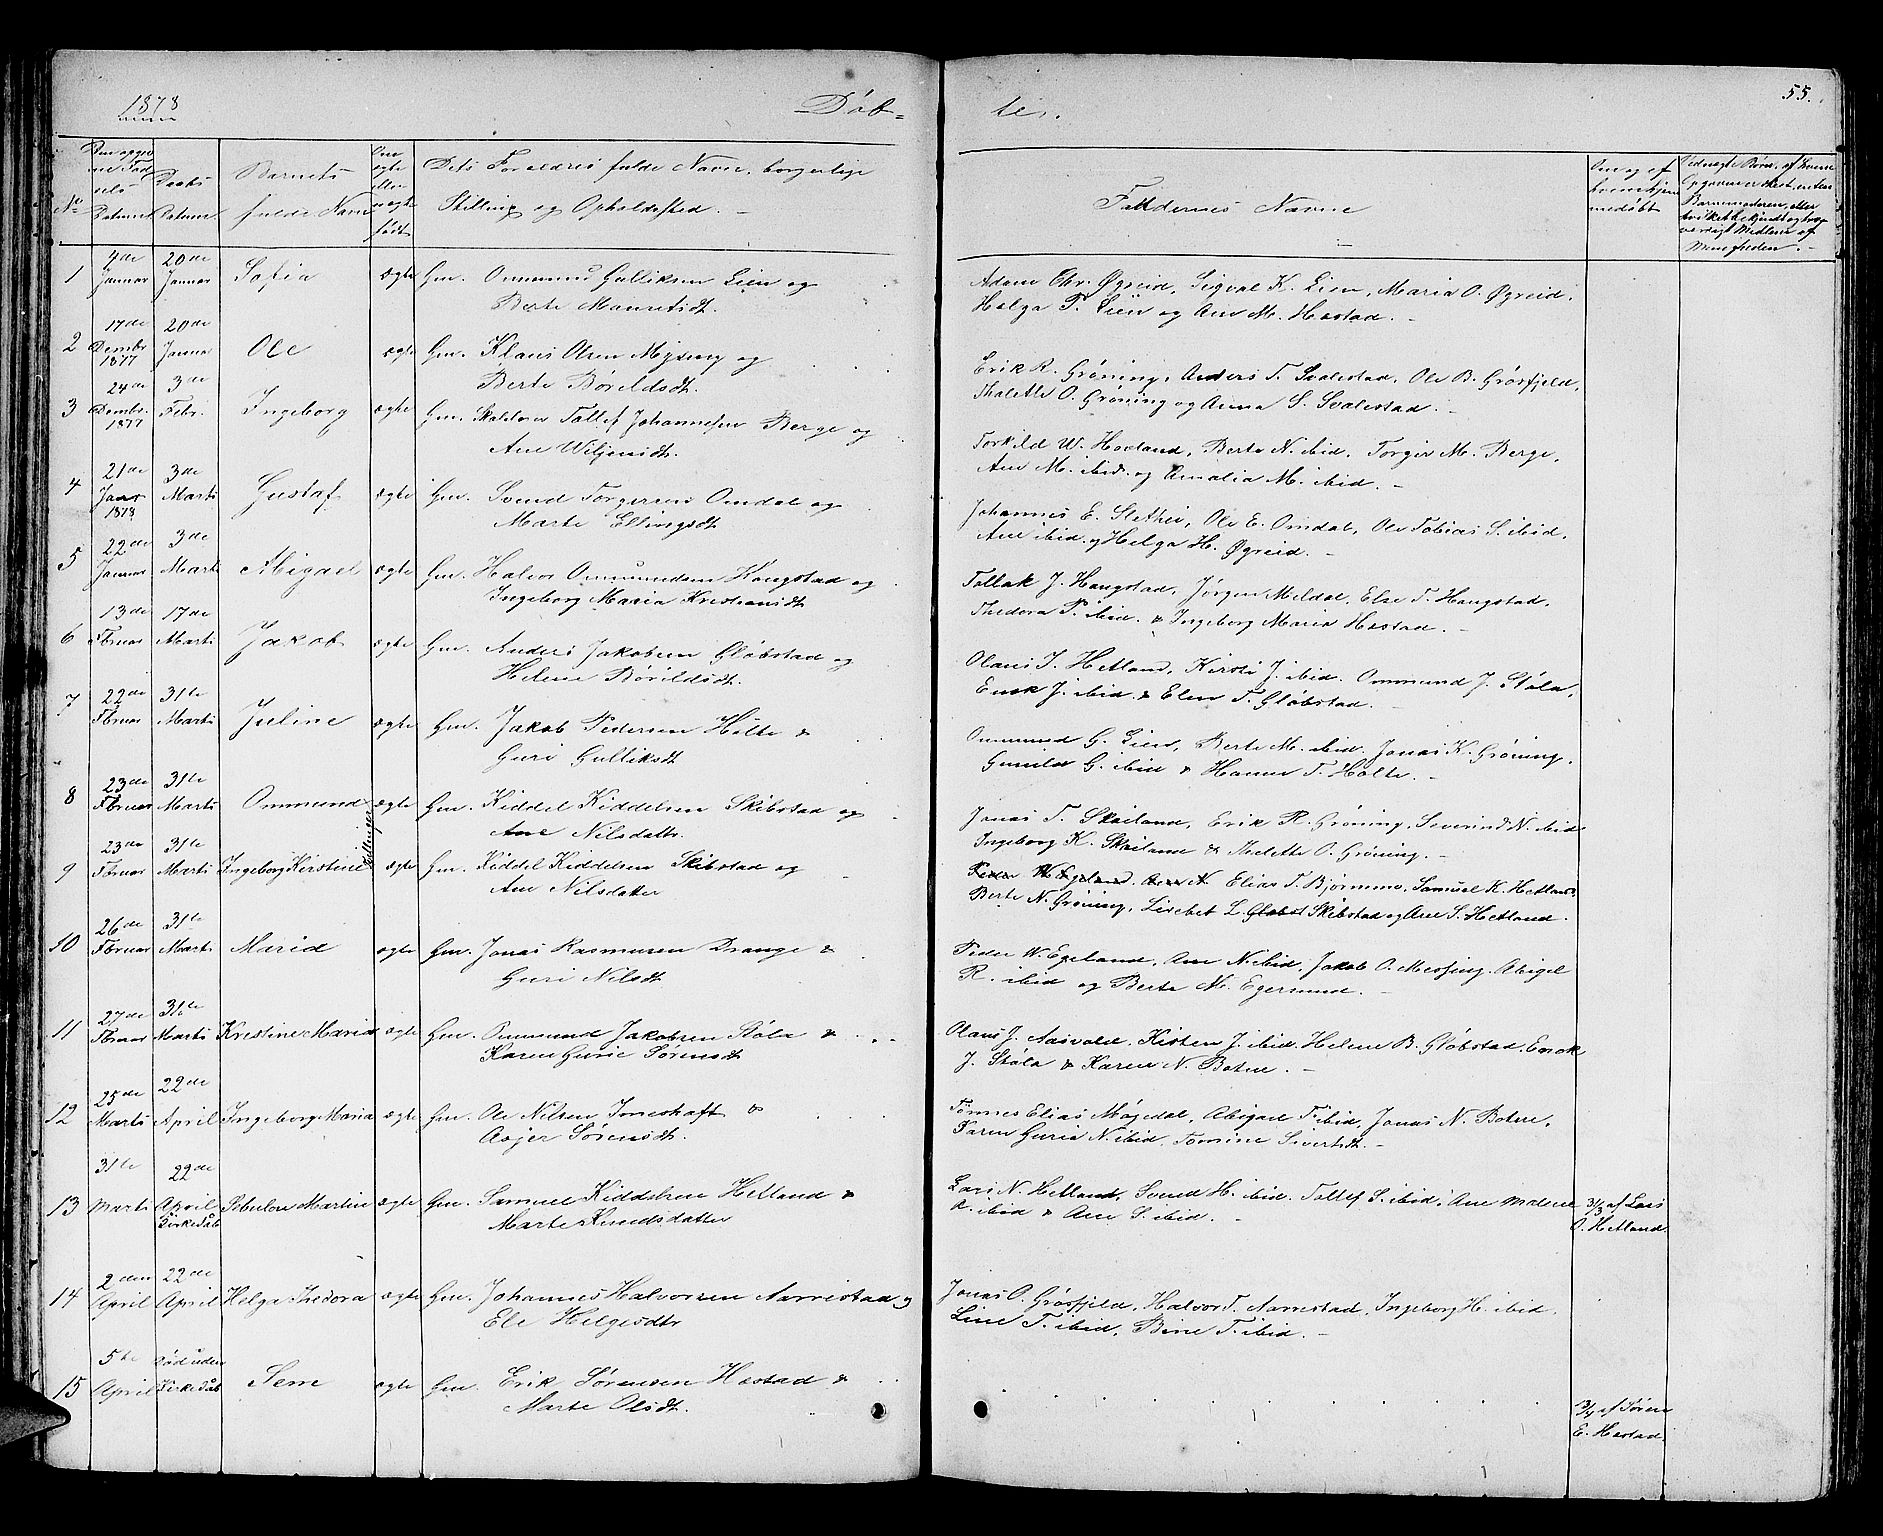 1878
Døb-
ter.
55.
No
Datum
Daabs
Datum
Barnets
fulde Navn
Om
ægte
eller
uægte
født
Dets Forældres fulde Navn, borgerlige
Stilling og Opholdssted. -
Faddernes Navne
1
4de
Januar
20de
Januar
Sofia
ægte
Gm. Ommund Gulliksen Lien og
Berte Mauritsdt.
Adam Chr. Øgreid, Sigval K. Lien, Maria O. Øgreid,
Helga T. Lien og Ane M. Hæstad. -
2
17de
Dembr
1877
20de
Januar
Ole
ægte
Gm. Klaus Olsen Mysing og
Berte Børildsdt.
Erik R. Grøning, Anders T. Svalestad, Ole B. Grøsfjeld,
Thalette O. Grøning og Anna S. Svalestad. -
3
24de
Dembr.
1877
3de
Febr.
Ingeborg
ægte
Gm. Skoleholder Tollef Johannesen Berge og
Ane Wiljemsdt.
Torkild W. Hovland, Berte N. ibid, Torger M. Berge,
Ane M. ibid. og Amalia M. ibid. -
4
21de
Jaar
1878
3de
Marts
Gustaf
ægte
Gm. Svend Torgersen Omdal og
Marte Ellingsdt
Johannes E. Slethei, Ole E. Omdal, Ole Tobias S. ibid,
Ane ibid. og Helga H. Øgreid. -
5
22de
Januar
3de
Marts
Abigael
ægte
Gm. Halvor Ommundsen Haugstad og
Ingeborg Maria Kristensdt
Tollak J. Haugstad, Jørgen Mildal, Else T. Haugstad,
Thedora P. ibid. & Ingeborg Maria Hæstad. -
6
13de
Februar
17de
Marts
Jakob
ægte
Gm. Anders Jakobsen Gløbstad og
Helene Børildsdt.
Olaus J. Hetland, Kirsti J. ibid. Ommund J. Støla,
Enok J. ibid. & Elen T. Gløbstad. -
7
22de
Februar
31te
Marts
Juline
ægte
Gm. Jakob Pedersen Holte &
Guri Gulliksdt
Ommund G. Lien, Berte M. ibid. Jonas K. Grøning,
Gunild G. ibid & Hanne T. Holte. -
8
23de
Februar
31te
Marts
Ommund
ægte
Tvillinger
Gm. Kiddel Kiddelsen Skibstad og
Ane Nilsdatter.
Jonas T. Skailand, Erik R. Grøning, Severine N. ibid
Ingeborg K. Skailand & Thalette O. Grøning. -
9
23de
Februar
31te
Marts
Ingeborg Kirstine
ægte
Gm. Kiddel Kiddelsen Skibstad og
Ane Nilsdatter
Peder W. Egeland, Ane N. Elias T. Bjørnmo, Samuel K. Hetland,
Berte N. Grøning, Lisebet L. Skibstad og Ane S. Hetland.
10
26de
Februar
31te
Marts
Maria
ægte
Gm. Jonas Rasmusen Drange &
Guri Nilsdt
Peder W. Egeland, Ane N. ibid, Jakob O. Mysing, Abigel
R. ibid og Berte M. Egersund. -
11
27de
Februar
31te
Marts
Kristine Maria
ægte
Gm. Ommund Jakobsen Støla &
Karen Gurie Sørensdt
Olaus J. Aasvold, Kisten J. ibid, Helene B. Gløbstad, Enok
J. Støla & Karen N. Botne. -
12
25de
Marts
22de
April
Ingeborg Maria
ægte
Gm. Ole Nilsen Joneshaft &
Asjer Sørensdt.
Tønnes Elias Møgedal, Abigael T. ibid, Jonas N. Botne,
Karen Gurie N. ibid, Tomine Sivertsdt. -
13
31te
Marts
22de
April
Kirkedåb
Martin
ægte
Gm. Samuel Kiddelsen Hetland &
Marte Knudsdatter
Lars N. Hetland, Svend H. ibid. Tollef S. ibid, Ane Malene
R. ibid & Ane S. ibid. -
31/3 af Lars
O. Hetland.
14
2den
April
22de
April
Helga Thedora
ægte
Gm. Johannes Halvorsen Aarrestad og
Ele Helgesdtr
Jonas O. Grøsfjeld, Halvor T. Aarrestad, Ingeborg H. ibid.
Line T. ibid, Bine T. ibid. -
15
5te
April
Død uden
Kirkedåb
Sem
ægte
Gm. Erik Sørensen Hæstad &
Marte Olsdt.
af Søren
E. Hæstad.